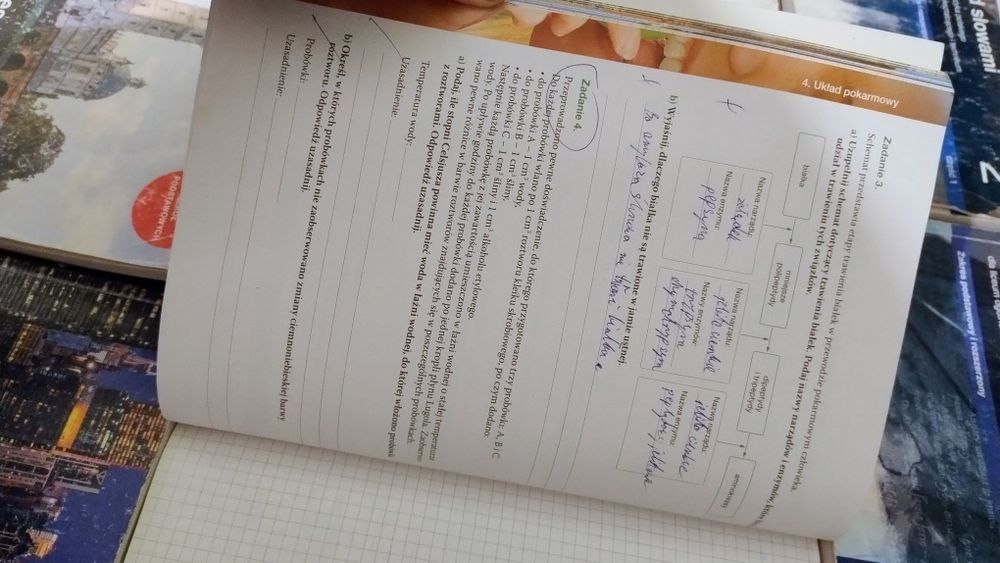 4. Układ pokarmowy
Zadanie 3.
Schemat przedstawia etapy trawienia białek w przewodzie pokarmowym człowieka.
a) Uzupełnij schemat dotyczący trawienia białek. Podaj nazwy narządów i enzymów,
udział w trawieniu tych związków.
białka
mniejsze
polipeptydy
dipeptydy
i tripeptydy
aminokwasy
Nazwa narządu:
żołądek
Nazwa enzymu:
pepsyna
Nazwa narządu:
jelito cienkie
Nazwy enzymów:
trypsyna
chymotrypsyna
Nazwa narządu:
jelito cienkie
Nazwa enzymu:
b) Wyjaśnij, dlaczego białka nie są trawione w jamie ustnej.
Bo amylaza ślinowa nie trawi białka
Zadanie 4.
Przeprowadzono pewne doświadczenie, do którego przygotowano trzy probówki: A, B i C.
Do każdej probówki wlano po 1 cm³ roztworu kleiku skrobiowego, po czym dodano:
• do probówki A – 1 cm³ wody,
• do probówki B – 1 cm³ śliny,
• do probówki C – 1 cm³ śliny i 1 cm³ alkoholu etylowego.
Następnie każdą probówkę z jej zawartością umieszczono w łaźni wodnej o stałej temperaturze
wody. Po upływie godziny do każdej probówki dodano po jednej kropli płynu Lugola. Zaobserwo-
wano pewne różnice w barwie roztworów znajdujących się w poszczególnych probówkach.
a) Podaj, ile stopni Celsjusza powinna mieć woda w łaźni wodnej, do której włożono probówki
z roztworami. Odpowiedź uzasadnij.
Temperatura wody:
Uzasadnienie:
b) Określ, w których probówkach nie zaobserwowano zmiany ciemnoniebieskiej barwy
roztworu. Odpowiedź uzasadnij.
Probówki:
Uzasadnienie:
PODSTAWOWYCH
słowami
2
część 1
Zakres podstawowy i rozszerzony